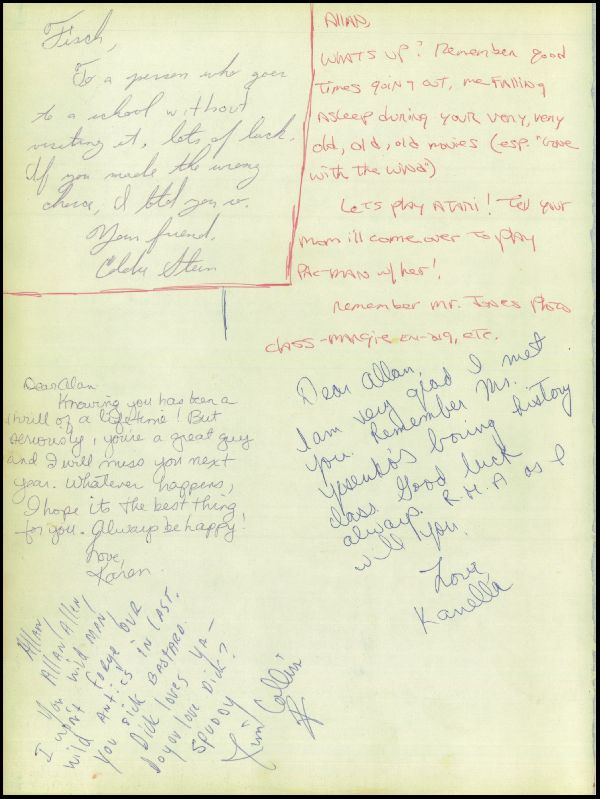 Fisch,
To a person who goes
to a school without
visiting it, lots of luck.
If you made the wrong
choice, I told you so.
Your friend,
Stein
Allan,
Whats up? Remember good
times going out, me falling
asleep during your very, very
old, old, old movies (esp. "Gone
with the Wind")
Lets play Atari! Tell your
mom ill come over to play
Pac-man w/her!
Remember Mr. Jones Photo
class-margie etc.
Dear Alan
Knowing you has been a
thrill of a lifetime! But
seriously, you're a great guy
and I will miss you next
year. Whatever happens,
I hope its the best thing
for you. Always be happy!
Love,
Karen
Dear Allan,
I am very glad I met
you. Remember Mr.
boring history
class. Good luck
always. R.M.A as I
will you.
Love
Kanella
Allan,
Allan Allen
You wild man!
I won't forge OUR
wild antics in LAST.
you sick BASTARD.
Dick loves ya-
Do you love Dick?
SPUDDY
Jim Collins